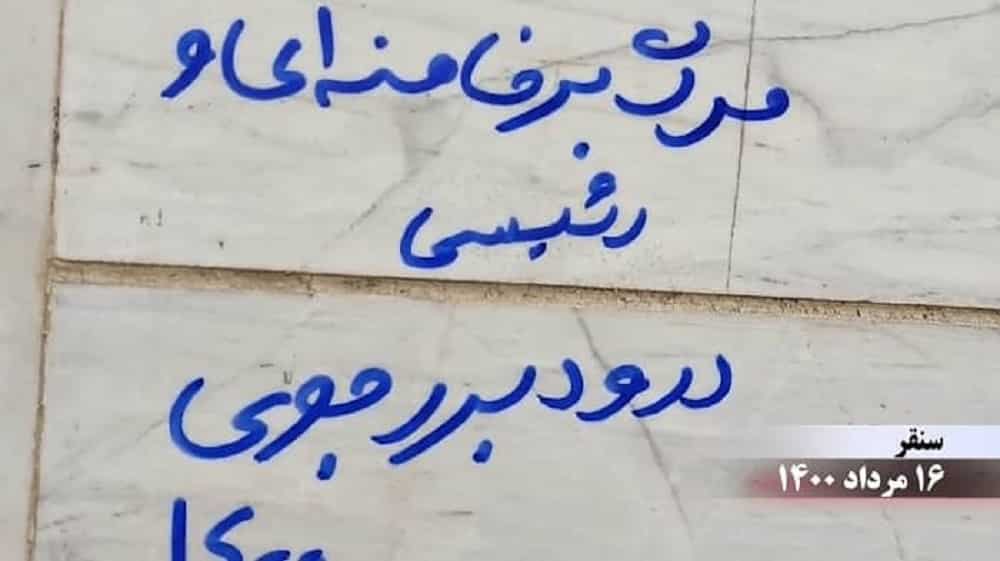 مرگ بر خامنه ای و
رئیسی
درود بر رجوی
سنقر
۱۶ مرداد ۱۴۰۰